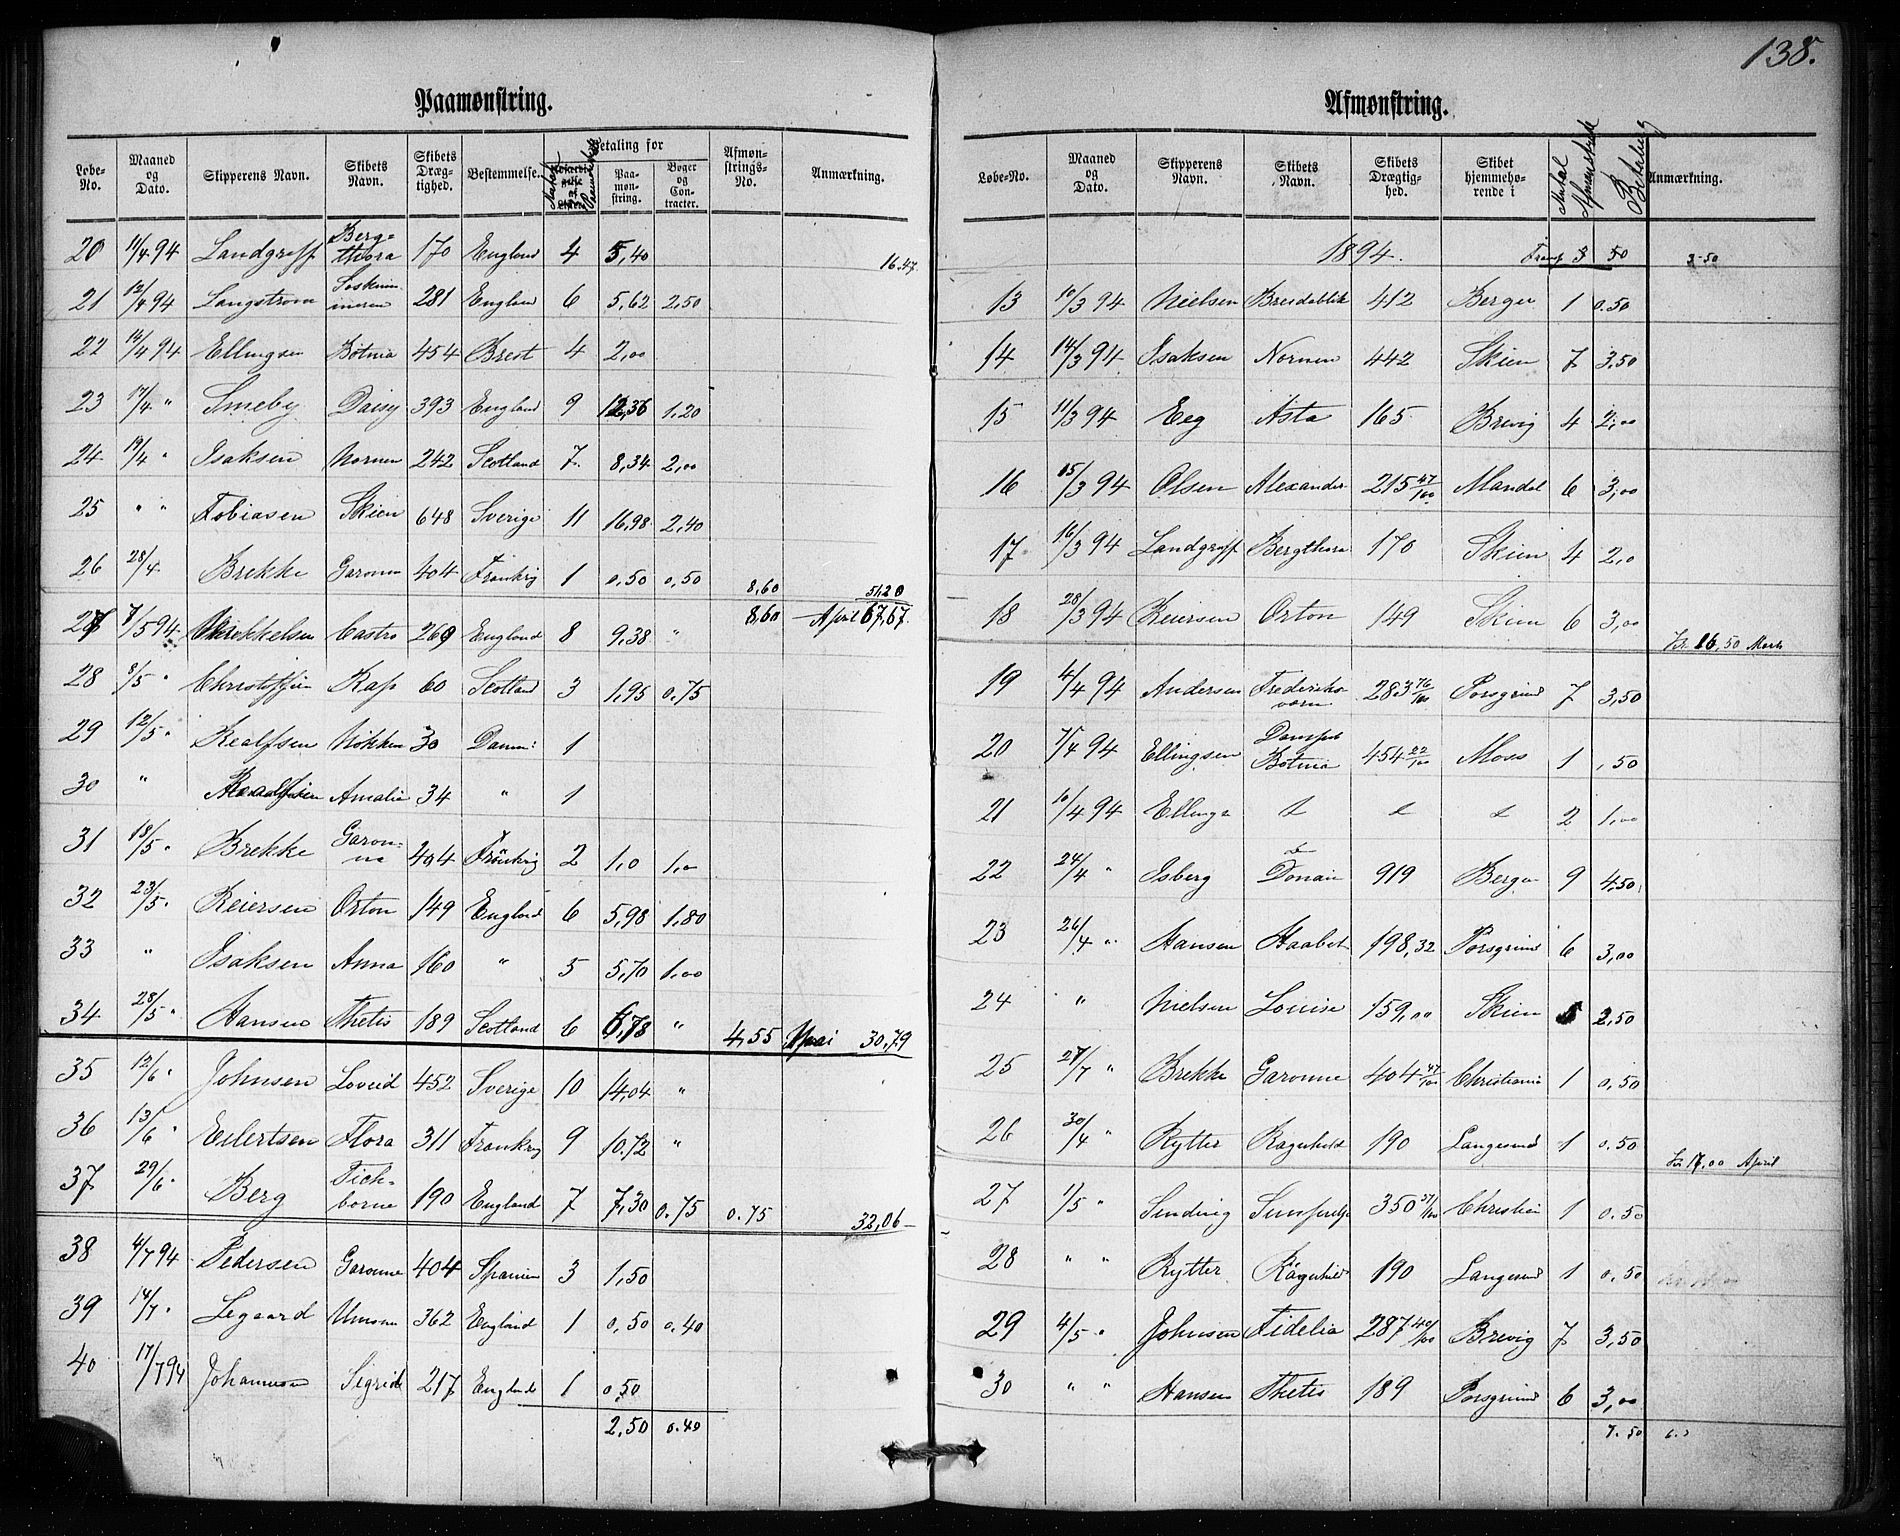 138.
Paamønstring.
Løbe-No. Maaned og Dato. Skipperens Navn. Skibets Navn. Skibets Dræg-tighed. Bestemmelse. Betaling for Paa-møn-string. Bøger og Con-tracter. Afmøn-strings-No. Anmærkning.
20 11/4 94 Landgraff Berg=thora 170 England 4 5,40 16.47
21 12/4 94 Langstrom 281 England 6 5,62 2,50
22 14/4 94 Ellingsen Botnia 454 Brest 4 2,00
23 17/4 " Smeby Daisy 393 England 9 12,36 1,20
24 19/4 " Isaksen Nornen 242 Scotland 7. 8,34 2,00
25 " " Tobiasen Skien 648 Sverige 11 16,98 2,40
26 28/4 Brekke Garonne 404 Frankrig 1 0,50 0,50 8,60 51,20
8,60 April 67,67.
27 /5 94 Castro 269 England 8 9,38 "
28 8/5 " Kap 60 Scotland 3 1,95 0.75
29 12/5 " Realfsen Nökken 30 Danm: 1
30 " Amalie 34 " 1
31 18/5 " Brekke Garon-ne 404 Frankrig 2 1,0 1,0
32 23/5 " Reiersen Orton 149 England 6 5,98 1,80
33 " Isaksen Anna 160 " 5 5,70 1,00
34 28/5 " Hansen Thetis 189 Scotland 6 6,78 " 4,55 Mai 30,79
35 12/6 " Johnsen Loveid 452 Sverige 10 14,04 "
36 13/6 " Eilertsen Flora 311 Frankrig 9 10.72 "
37 29/6 " Berg Tich-borne 190 England 7 7,30 0.75 0.75 32,06
38 4/7 94 Pedersen Garonne 404 Spanien 3 1,50
39 14/7 " Legaard 362 England 1 0,50 0,40
40 17/7 94 Johannesen Sigrid 217 England 1 0,50
2,50 0.40
Afmønstring.
Løbe-No. Maaned og Dato. Skipperens Navn. Skibets Navn. Skibets Drægtig-hed. Skibet hjemmehø-rende i Antal Afmønstrede Betaling Anmærkning.
1894. Transp 3 50 3-50
13 10/3 94 Nielsen Breidablik 412 Bergen 1 0.50
14 14/3 94 Isaksen Nornen 442 Skien 7 3,50
15 11/3 94 Eeg Asta 165 Brevig 4 2,00
16 15/3 94 Olsen Alexander 215 47/100 Mandal 6 3,00
17 16/3 94 Landgraff Bergthora 170 Skien 4 2,0
18 28/3 94 Reiersen Orton 149 Skien 6 3,00
Kr. 16,50 Marts
19 4/4 94 Andersen Frederiks-værn 283 76/100 Porsgrund 7 3,50
20 7/4 94 Ellingsen Dampsk Botnia 454 22/100 Moss 1 ,50
21 10/4 94 Ellings 2 1,00
22 24/4 " Isberg Donau 919 Bergen 9 4,50
23 26/4 " Hansen Haabet 198,32 Porsgrund 6 3,00
24 " Nielsen Louise 159,00 Skien 5 2,50
25 27/7 " Brekke Garonne 404 47/100 Christiania 1 0,50
26 30/4 " Rytter Ragnhild 190 Langesund 1 0.50
Kr 17,00 April
27 1/5 " Sinding 350 37/100 Christia 1 0.50
28 " " Rytter Ragnhild 190 Langesund 1 0,50
29 4/5 " Johnsen Fidelia 287 40/100 Brevig 7 3,50
30 " " Hansen Thetis 189 Porsgrund 6 3,00
7.50